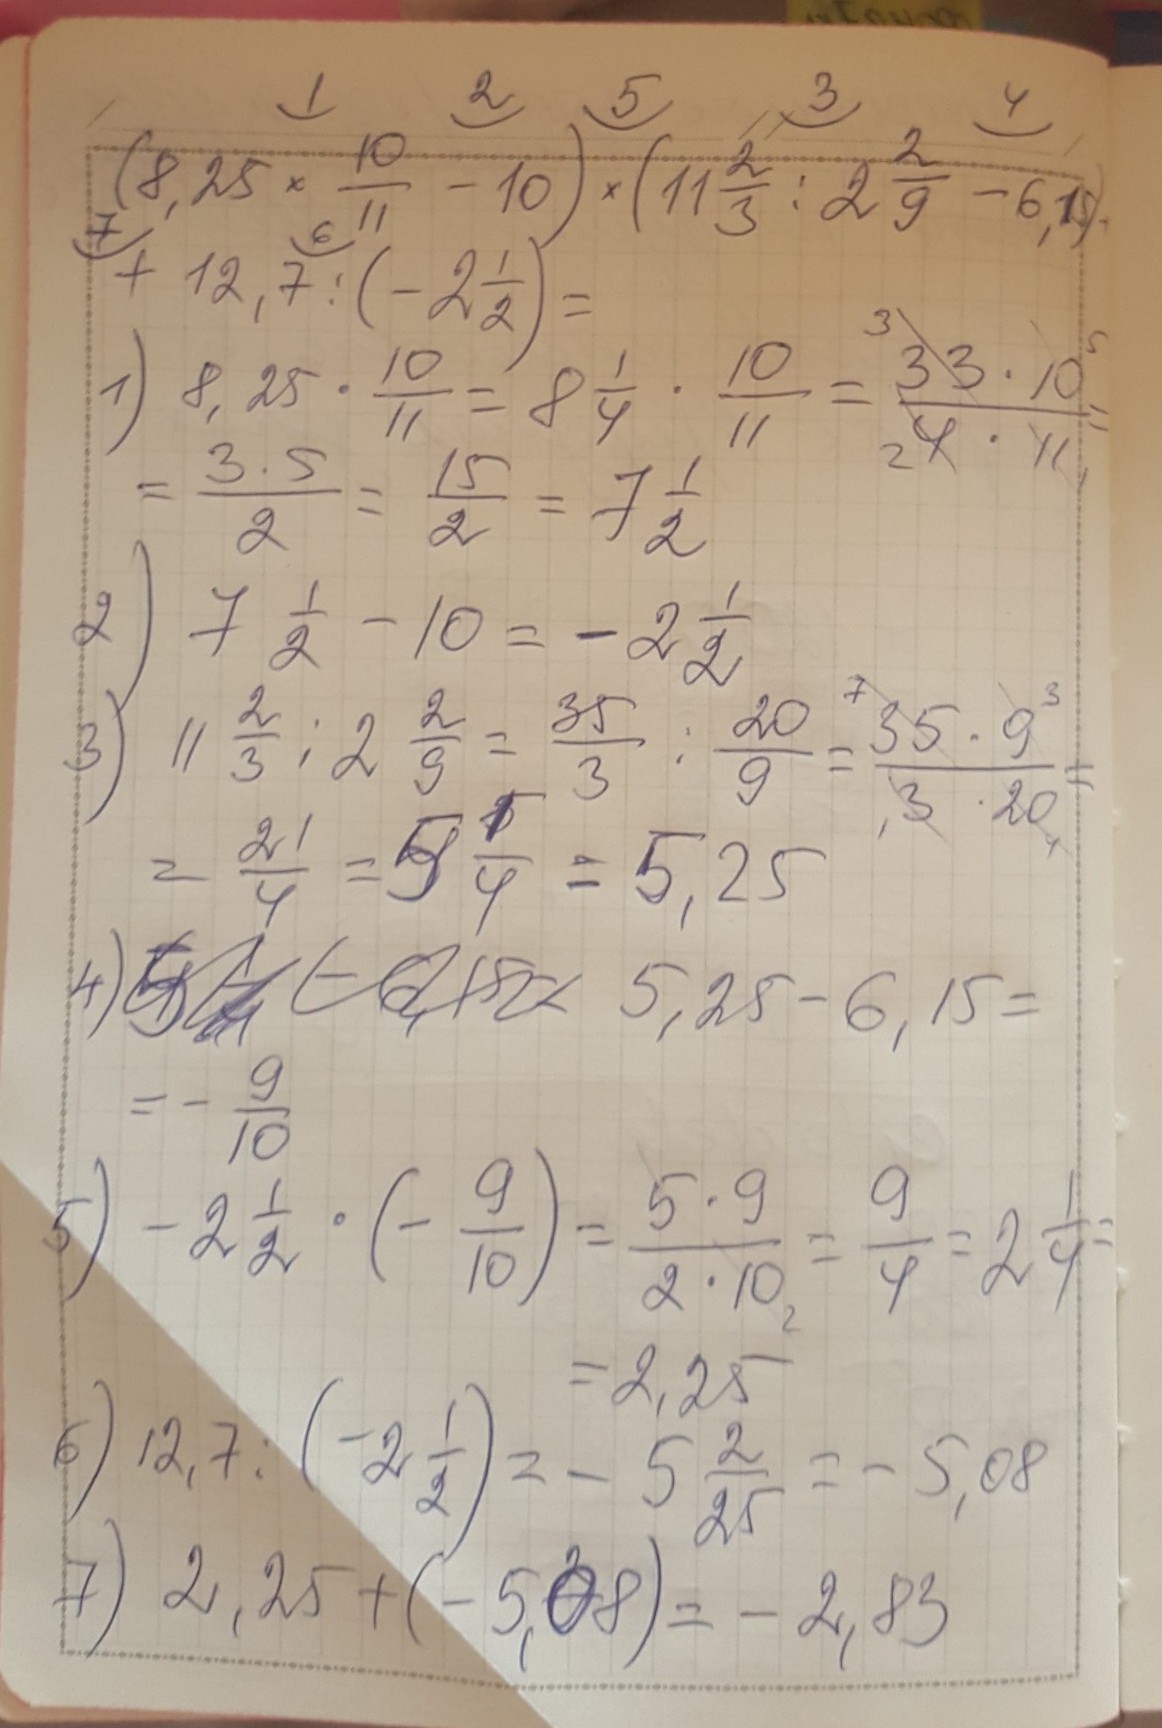 1 2 5 3 4
(8,25 × 10/11 − 10) × (11 2/3 : 2 2/9 − 6,15)
7 6
+ 12,7 : (− 2 1/2) =
1) 8,25 · 10/11 = 8 1/4 · 10/11 = 3 33 · 10 5 / 2 4 · 11 1 =
= 3·5/2 = 15/2 = 7 1/2
2) 7 1/2 − 10 = − 2 1/2
3) 11 2/3 : 2 2/9 = 35/3 : 20/9 = 7 35 · 9 3 / 1 3 · 20 4 =
= 21/4 = 5 1/4 = 5,25
4) 5,25 − 6,15 =
= − 9/10
5) − 2 1/2 · (− 9/10) = 5·9 / 2·10 2 = 9/4 = 2 1/4 =
= 2,25
6) 12,7 : (− 2 1/2) = − 5 2/25 = − 5,08
7) 2,25 + (− 5,08) = − 2,83